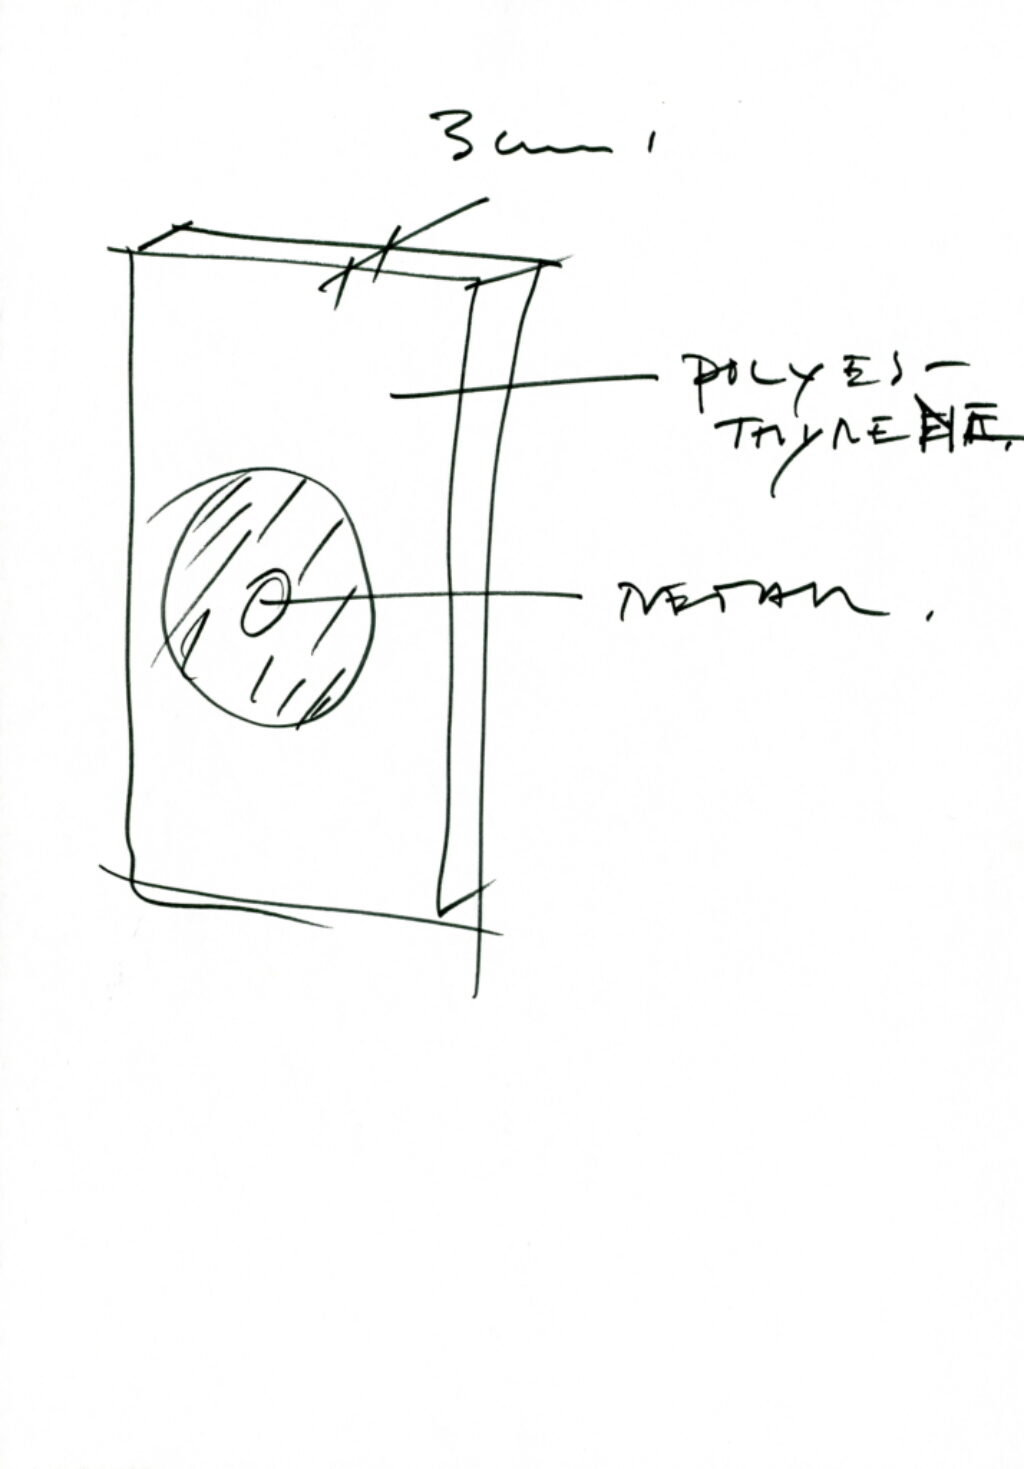 3 cm.
POLYES-
THYRENE.
METAL.